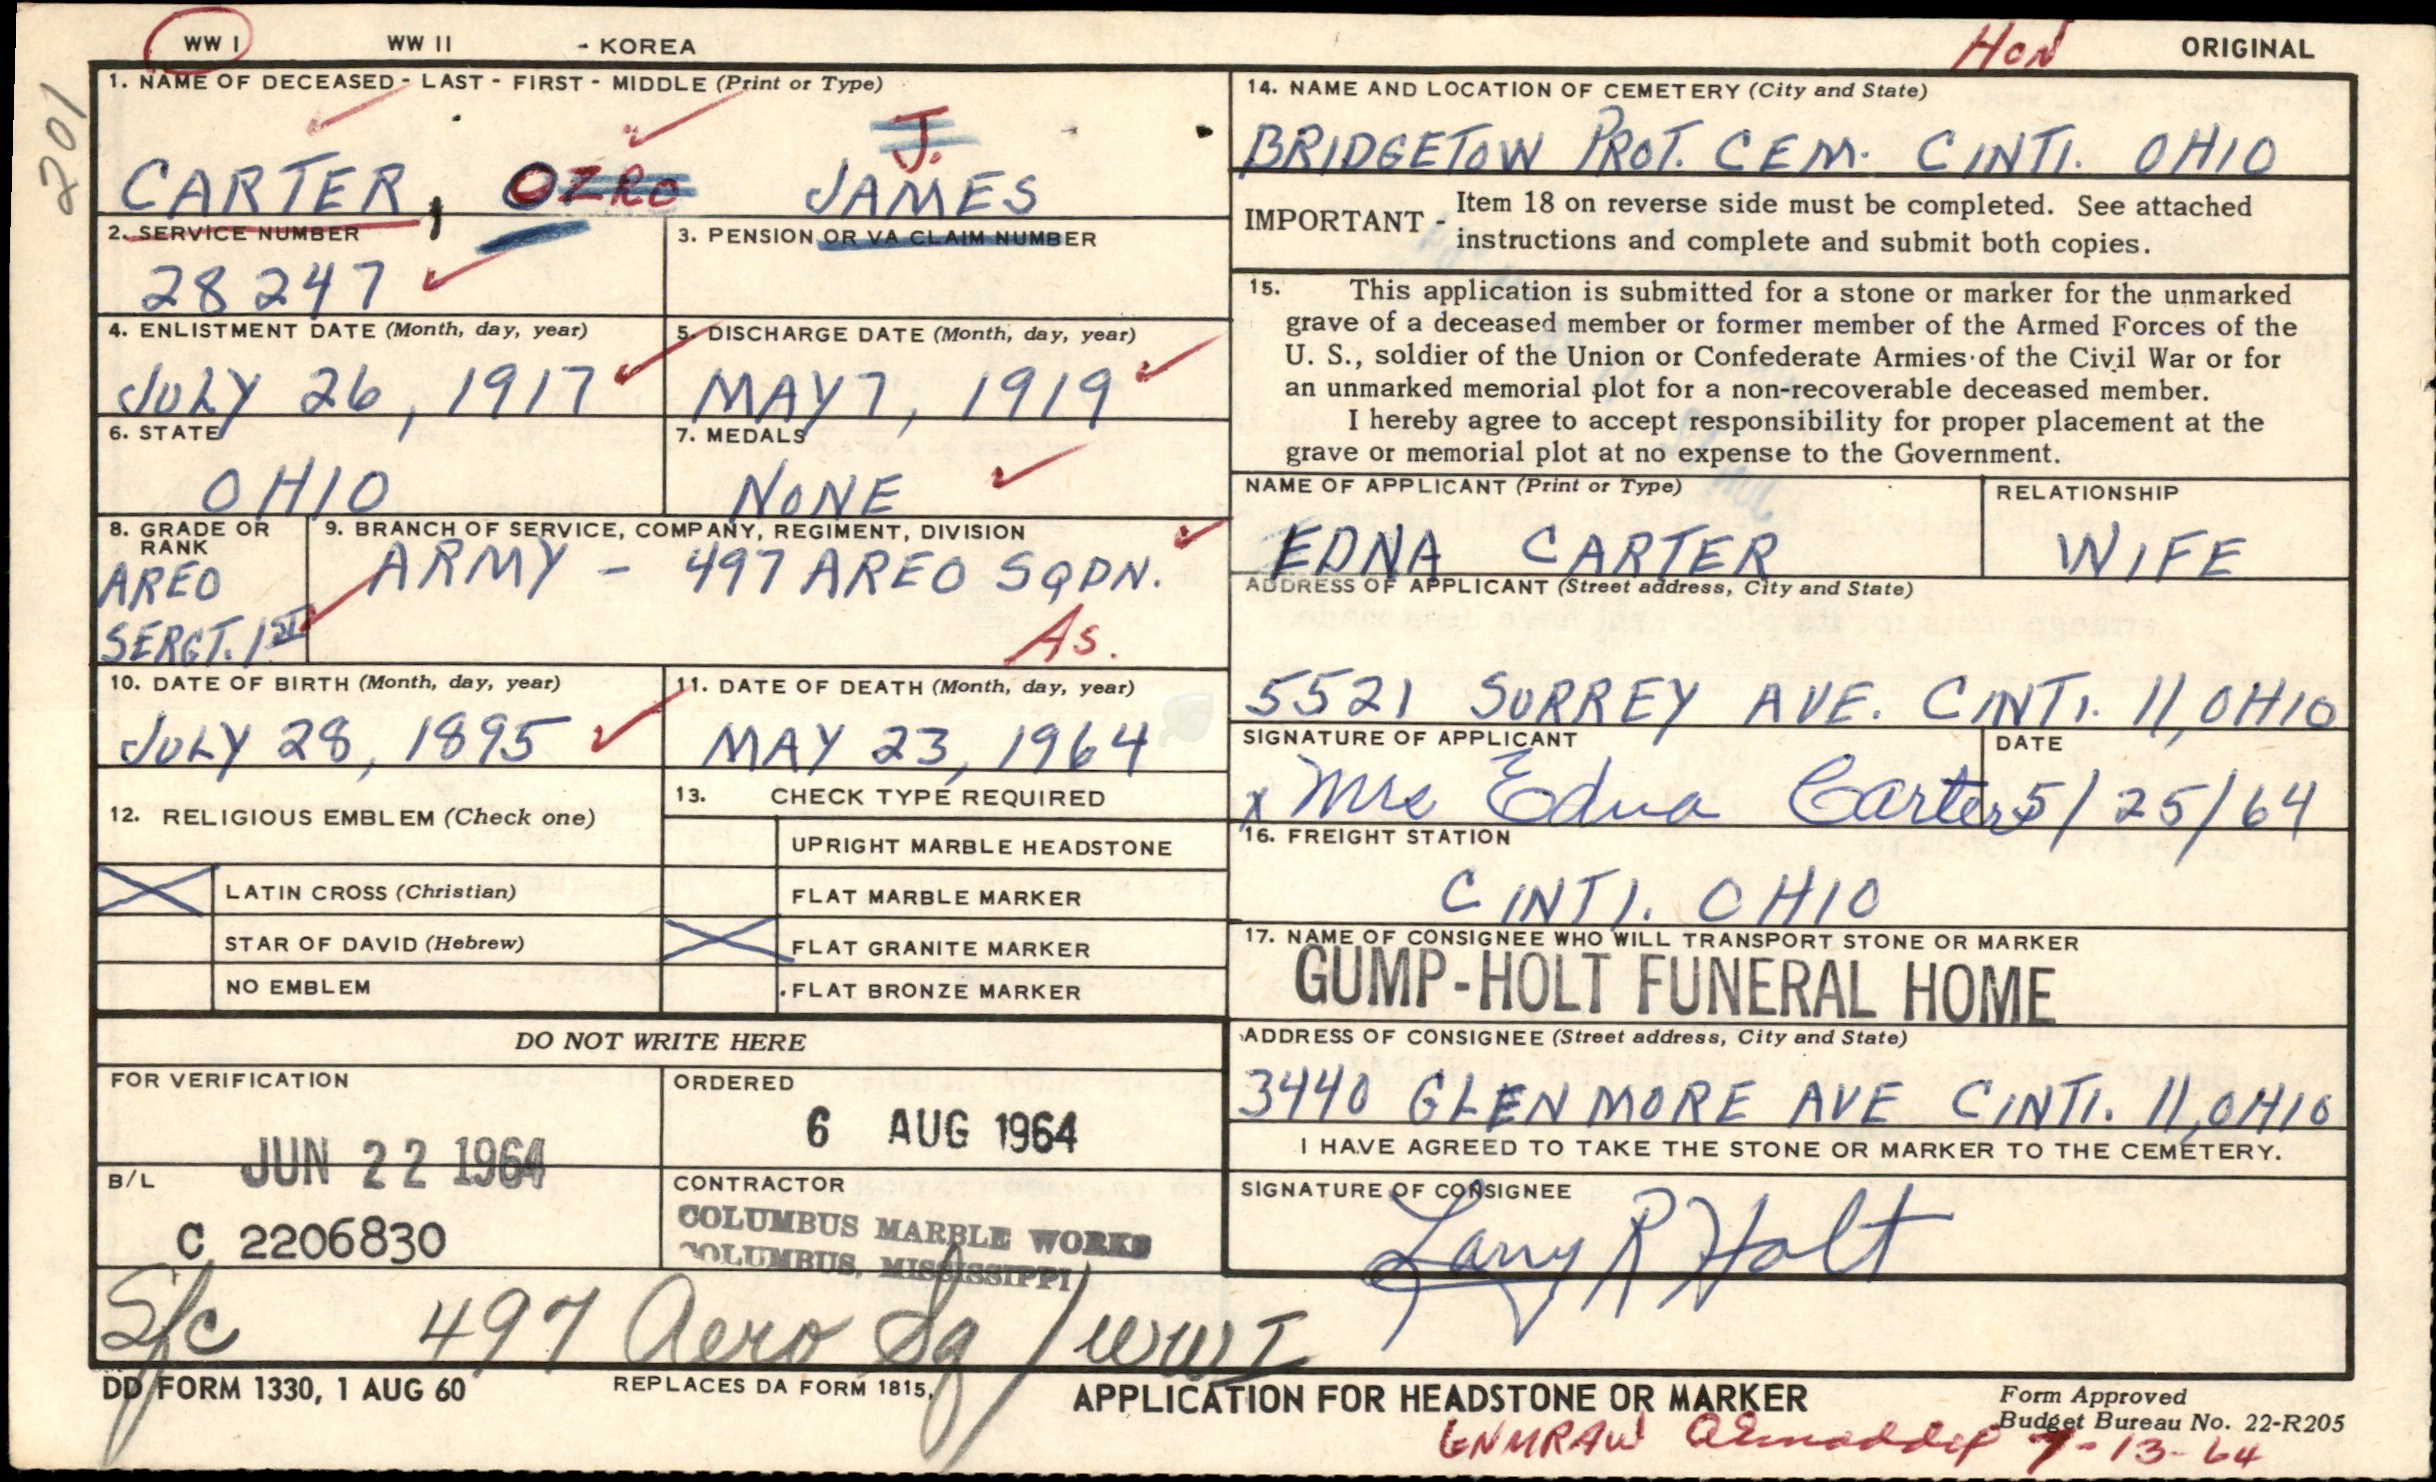 WW I WW II - KOREA Hon ORIGINAL
201
1. NAME OF DECEASED - LAST - FIRST - MIDDLE (Print or Type)
J.
CARTER, OZRO JAMES
2. SERVICE NUMBER
28 247
3. PENSION OR VA CLAIM NUMBER
4. ENLISTMENT DATE (Month, day, year)
JULY 26, 1917
5. DISCHARGE DATE (Month, day, year)
MAY 7, 1919
6. STATE
OHIO
7. MEDALS
NONE
8. GRADE OR RANK
AREO
SERGT. 1ST
9. BRANCH OF SERVICE, COMPANY, REGIMENT, DIVISION
ARMY - 497 AREO SQDN.
As.
10. DATE OF BIRTH (Month, day, year)
JULY 28, 1895
11. DATE OF DEATH (Month, day, year)
MAY 23, 1964
12. RELIGIOUS EMBLEM (Check one)
LATIN CROSS (Christian)
STAR OF DAVID (Hebrew)
NO EMBLEM
13. CHECK TYPE REQUIRED
UPRIGHT MARBLE HEADSTONE
FLAT MARBLE MARKER
FLAT GRANITE MARKER
FLAT BRONZE MARKER
DO NOT WRITE HERE
FOR VERIFICATION
JUN 22 1964
ORDERED
6 AUG 1964
B/L
C 2206830
CONTRACTOR
COLUMBUS MARBLE WORKS
COLUMBUS, MISSISSIPPI
S/c 497 Aero Sq / WWI
14. NAME AND LOCATION OF CEMETERY (City and State)
BRIDGETOW PROT. CEM. CINTI. OHIO
IMPORTANT - Item 18 on reverse side must be completed. See attached
instructions and complete and submit both copies.
15. This application is submitted for a stone or marker for the unmarked
grave of a deceased member or former member of the Armed Forces of the
U. S., soldier of the Union or Confederate Armies of the Civil War or for
an unmarked memorial plot for a non-recoverable deceased member.
I hereby agree to accept responsibility for proper placement at the
grave or memorial plot at no expense to the Government.
NAME OF APPLICANT (Print or Type)
EDNA CARTER
RELATIONSHIP
WIFE
ADDRESS OF APPLICANT (Street address, City and State)
5521 SURREY AVE. CINTI. 11, OHIO
SIGNATURE OF APPLICANT
x Mrs Edna Carter
DATE
5/25/64
16. FREIGHT STATION
CINTI. OHIO
17. NAME OF CONSIGNEE WHO WILL TRANSPORT STONE OR MARKER
GUMP-HOLT FUNERAL HOME
ADDRESS OF CONSIGNEE (Street address, City and State)
3440 GLENMORE AVE CINTI. 11, OHIO
I HAVE AGREED TO TAKE THE STONE OR MARKER TO THE CEMETERY.
SIGNATURE OF CONSIGNEE
Larry R Holt
DD FORM 1330, 1 AUG 60 REPLACES DA FORM 1815, APPLICATION FOR HEADSTONE OR MARKER
Form Approved
Budget Bureau No. 22-R205
7-13-64